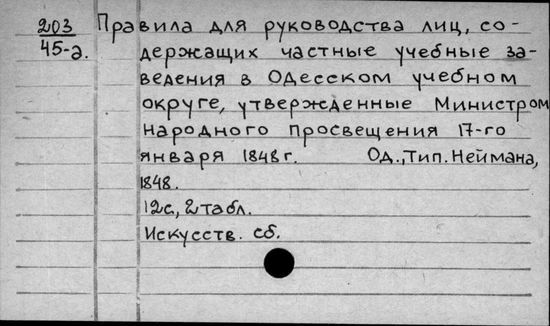 203 Правила для руководства лиц, со-
45-а. держащих частные учебные за-
ведения в Одесском учебном
округе, утвержденные Министром
народного просвещения 17-го
января 1848 г. Од., Тип. Неймана,
1848.
12с., 2 табл.
Искусств. сб.